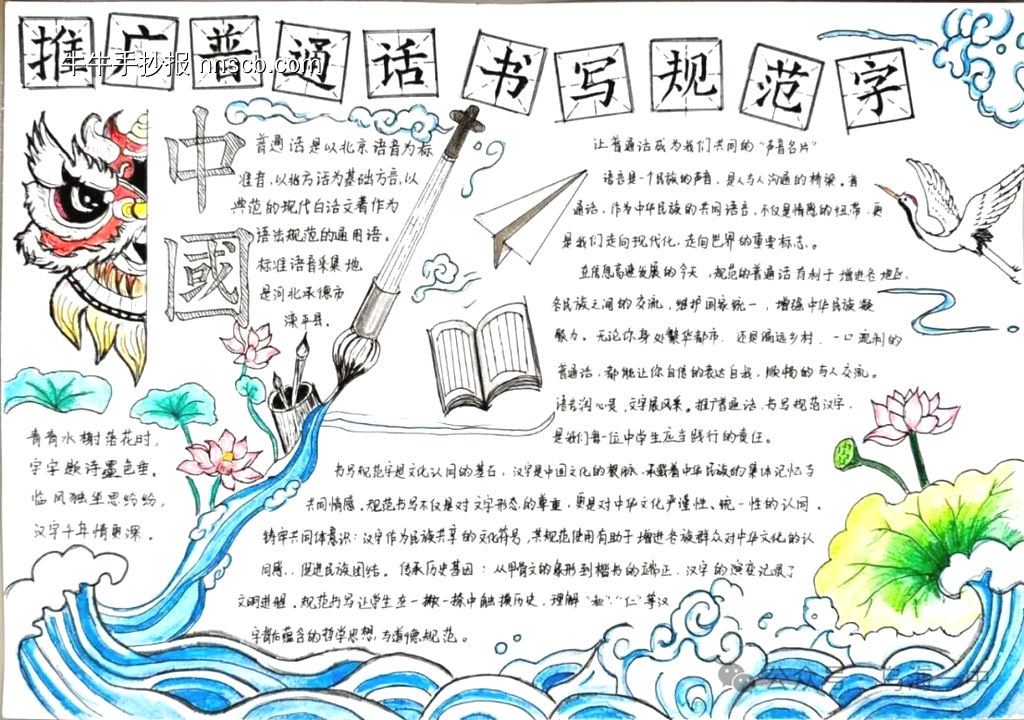 推广普通话 书写规范字
牛牛手抄报 nnscb.com
中國
普通话是以北京语音为标
准音，以北方话为基础方言，以
典范的现代白话文著作为
语法规范的通用语。
标准语音采集地
是河北承德市
滦平县。
让普通话成为我们共同的“声音名片”
语言是一个民族的声音，是人与人沟通的桥梁。普
通话，作为中华民族的共同语言，不仅是情感的纽带，更
是我们走向现代化，走向世界的重要标志。
在信息高速发展的今天，规范的普通话有利于增进各地区、
各民族之间的交流，维护国家统一，增强中华民族凝
聚力。无论你身处繁华都市，还是偏远乡村，一口流利的
普通话，都能让你自信的表达自我，顺畅的与人交流。
语言润心灵，文字展风采。推广普通话，书写规范汉字，
是我们每一位中学生应当践行的责任。
青青水榭落花时，
字字题诗墨色垂。
临风独坐思纷纷，
汉字千年情更深。
书写规范字是文化认同的基石，汉字是中国文化的根脉，承载着中华民族的集体记忆与
共同情感。规范书写不仅是对文字形态的尊重，更是对中华文化严谨性、统一性的认同。
铸牢共同体意识：汉字作为民族共享的文化符号，其规范使用有助于增进各族群众对中华文化的认
同感，促进民族团结。传承历史基因：从甲骨文的象形到楷书的端正，汉字的演变记录了
文明进程。规范书写让学生在一撇一捺中触摸历史，理解“和”“仁”等汉
字背后蕴含的哲学思想与道德规范。
公众号
一中